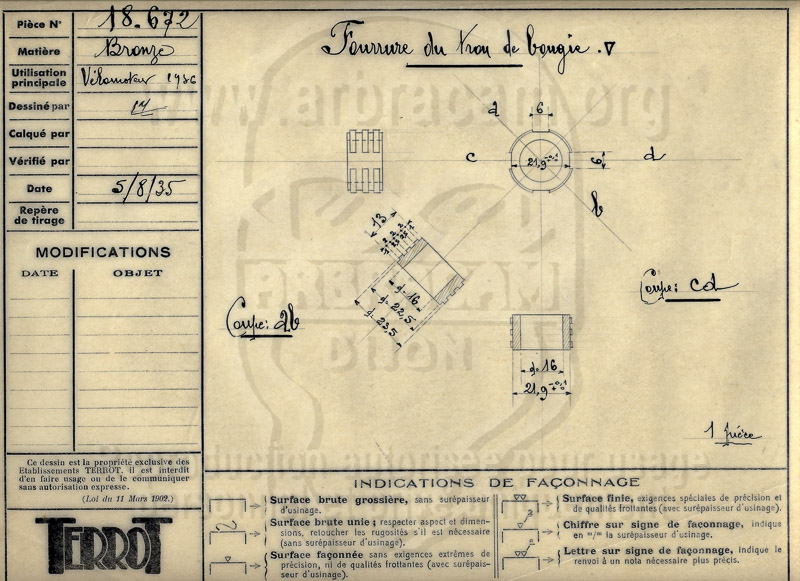 Pièce N° 18.672
Matière Bronze
Utilisation principale Vélomoteur 1936
Dessiné par
Calqué par
Vérifié par
Date 5/8/35
Repère de tirage
MODIFICATIONS
DATE OBJET
Ce dessin est la propriété exclusive des
Etablissements TERROT, il est interdit
d'en faire usage ou de le communiquer
sans autorisation expresse.
(Loi du 11 Mars 1902.)
TERROT
Fourrure du trou de bougie. ▽
www.arbracam.org
a 6
c 21,9 6 d
b
13
d=16
d=22,5
d=23,5
ARBRACAM
DIJON
Coupe: ab
Coupe: cd
d=16
21,9
1 pièce
INDICATIONS DE FAÇONNAGE
Surface brute grossière, sans surépaisseur
d'usinage.
Surface brute unie ; respecter aspect et dimen-
sions, retoucher les rugosités s'il est nécessaire
(sans surépaisseur d'usinage).
Surface façonnée sans exigences extrêmes de
précision, ni de qualités frottantes (avec surépais-
seur d'usinage).
Surface finie, exigences spéciales de précision et
de qualités frottantes (avec surépaisseur d'usinage).
Chiffre sur signe de façonnage, indique
en m/m la surépaisseur d'usinage.
Lettre sur signe de façonnage, indique le
renvoi à un nota nécessaire plus précis.